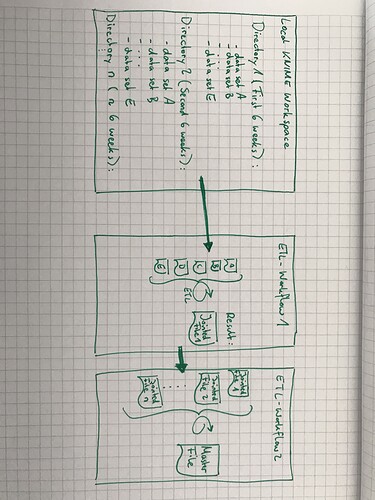 Local KNIME Workspace
Directory 1 (First 6 weeks):
- data set A
- data set B
- data set E
Directory 2 (Second 6 weeks):
- data set A
- data set B
- data set E
Directory n (n 6 weeks):
ETL-Workflow 1
A
B
C
D
E
ETL
Result:
Jointed
File 1
ETL-Workflow 2
Jointed
File 1
Jointed
File 2
Jointed
File n
Master
File